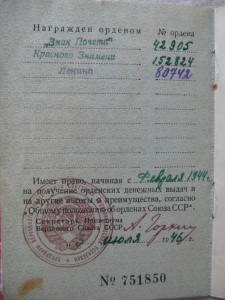 Награжден орденом № ордена
"Знак Почета" 42905
Красного Знамени 152824
Ленина 60742
Имеет право, начиная с февраля 1944 г.
на получение орденских денежных выдач и
на другие льготы и преимущества, согласно
"Общему положению об орденах Союза ССР".
Секретарь Президиума
Верховного Совета Союза ССР А. Горкин
июля 1946 г.
№ 751850